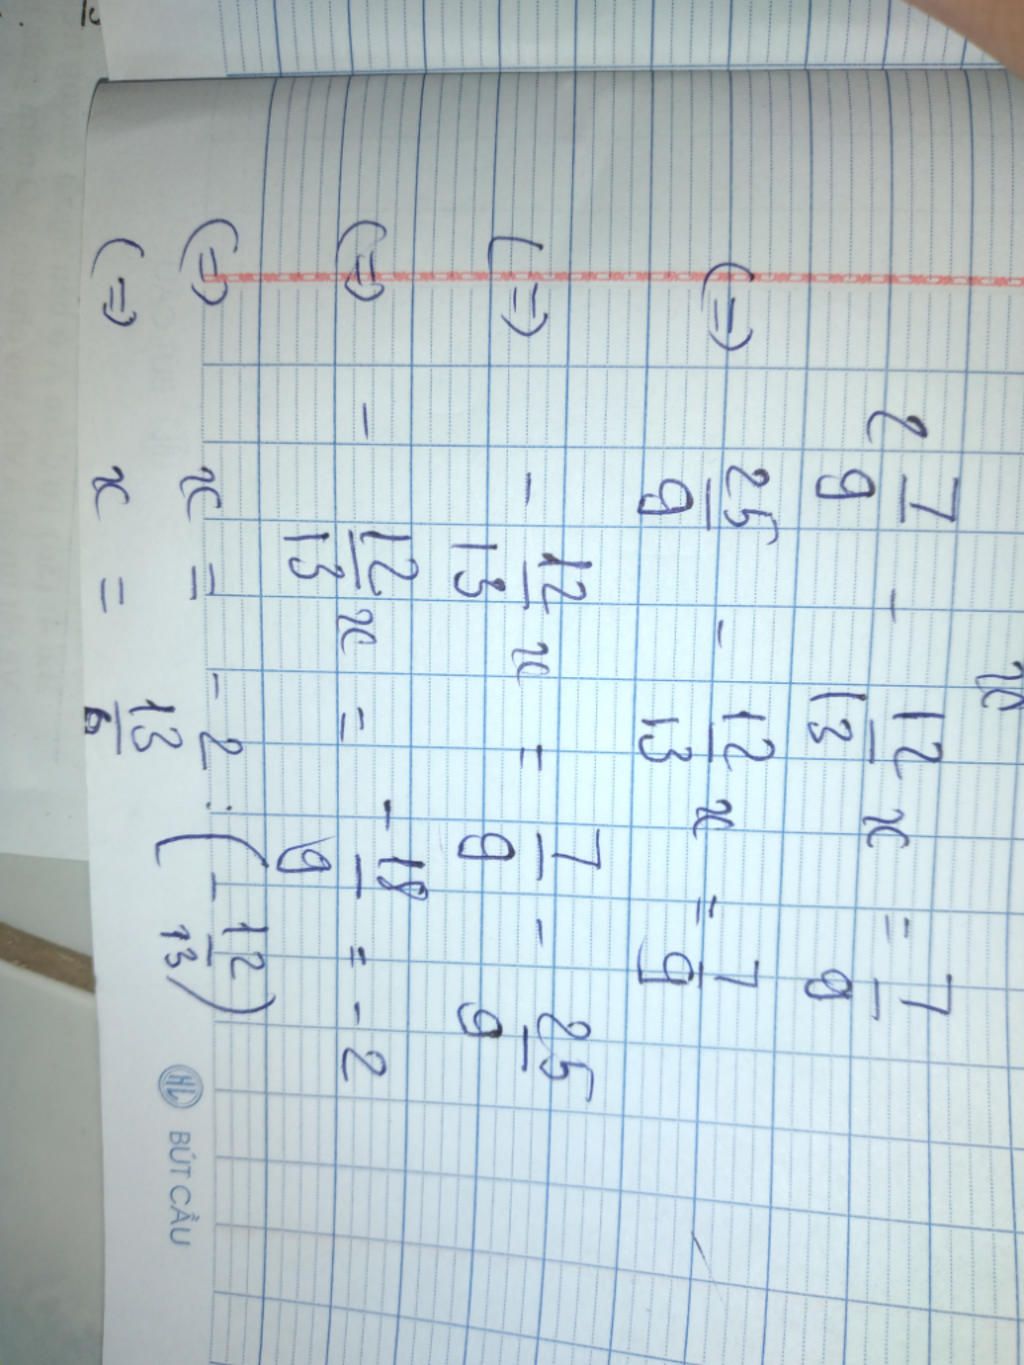 x
2 7/9 - 12/13 x = 7/9
(=) 25/9 - 12/13 x = 7/9
(=) - 12/13 x = 7/9 - 25/9
(=) - 12/13 x = - 18/9 = - 2
(=) x = - 2 : ( - 12/13 )
(=) x = 13/6
HL BÚT CẦU